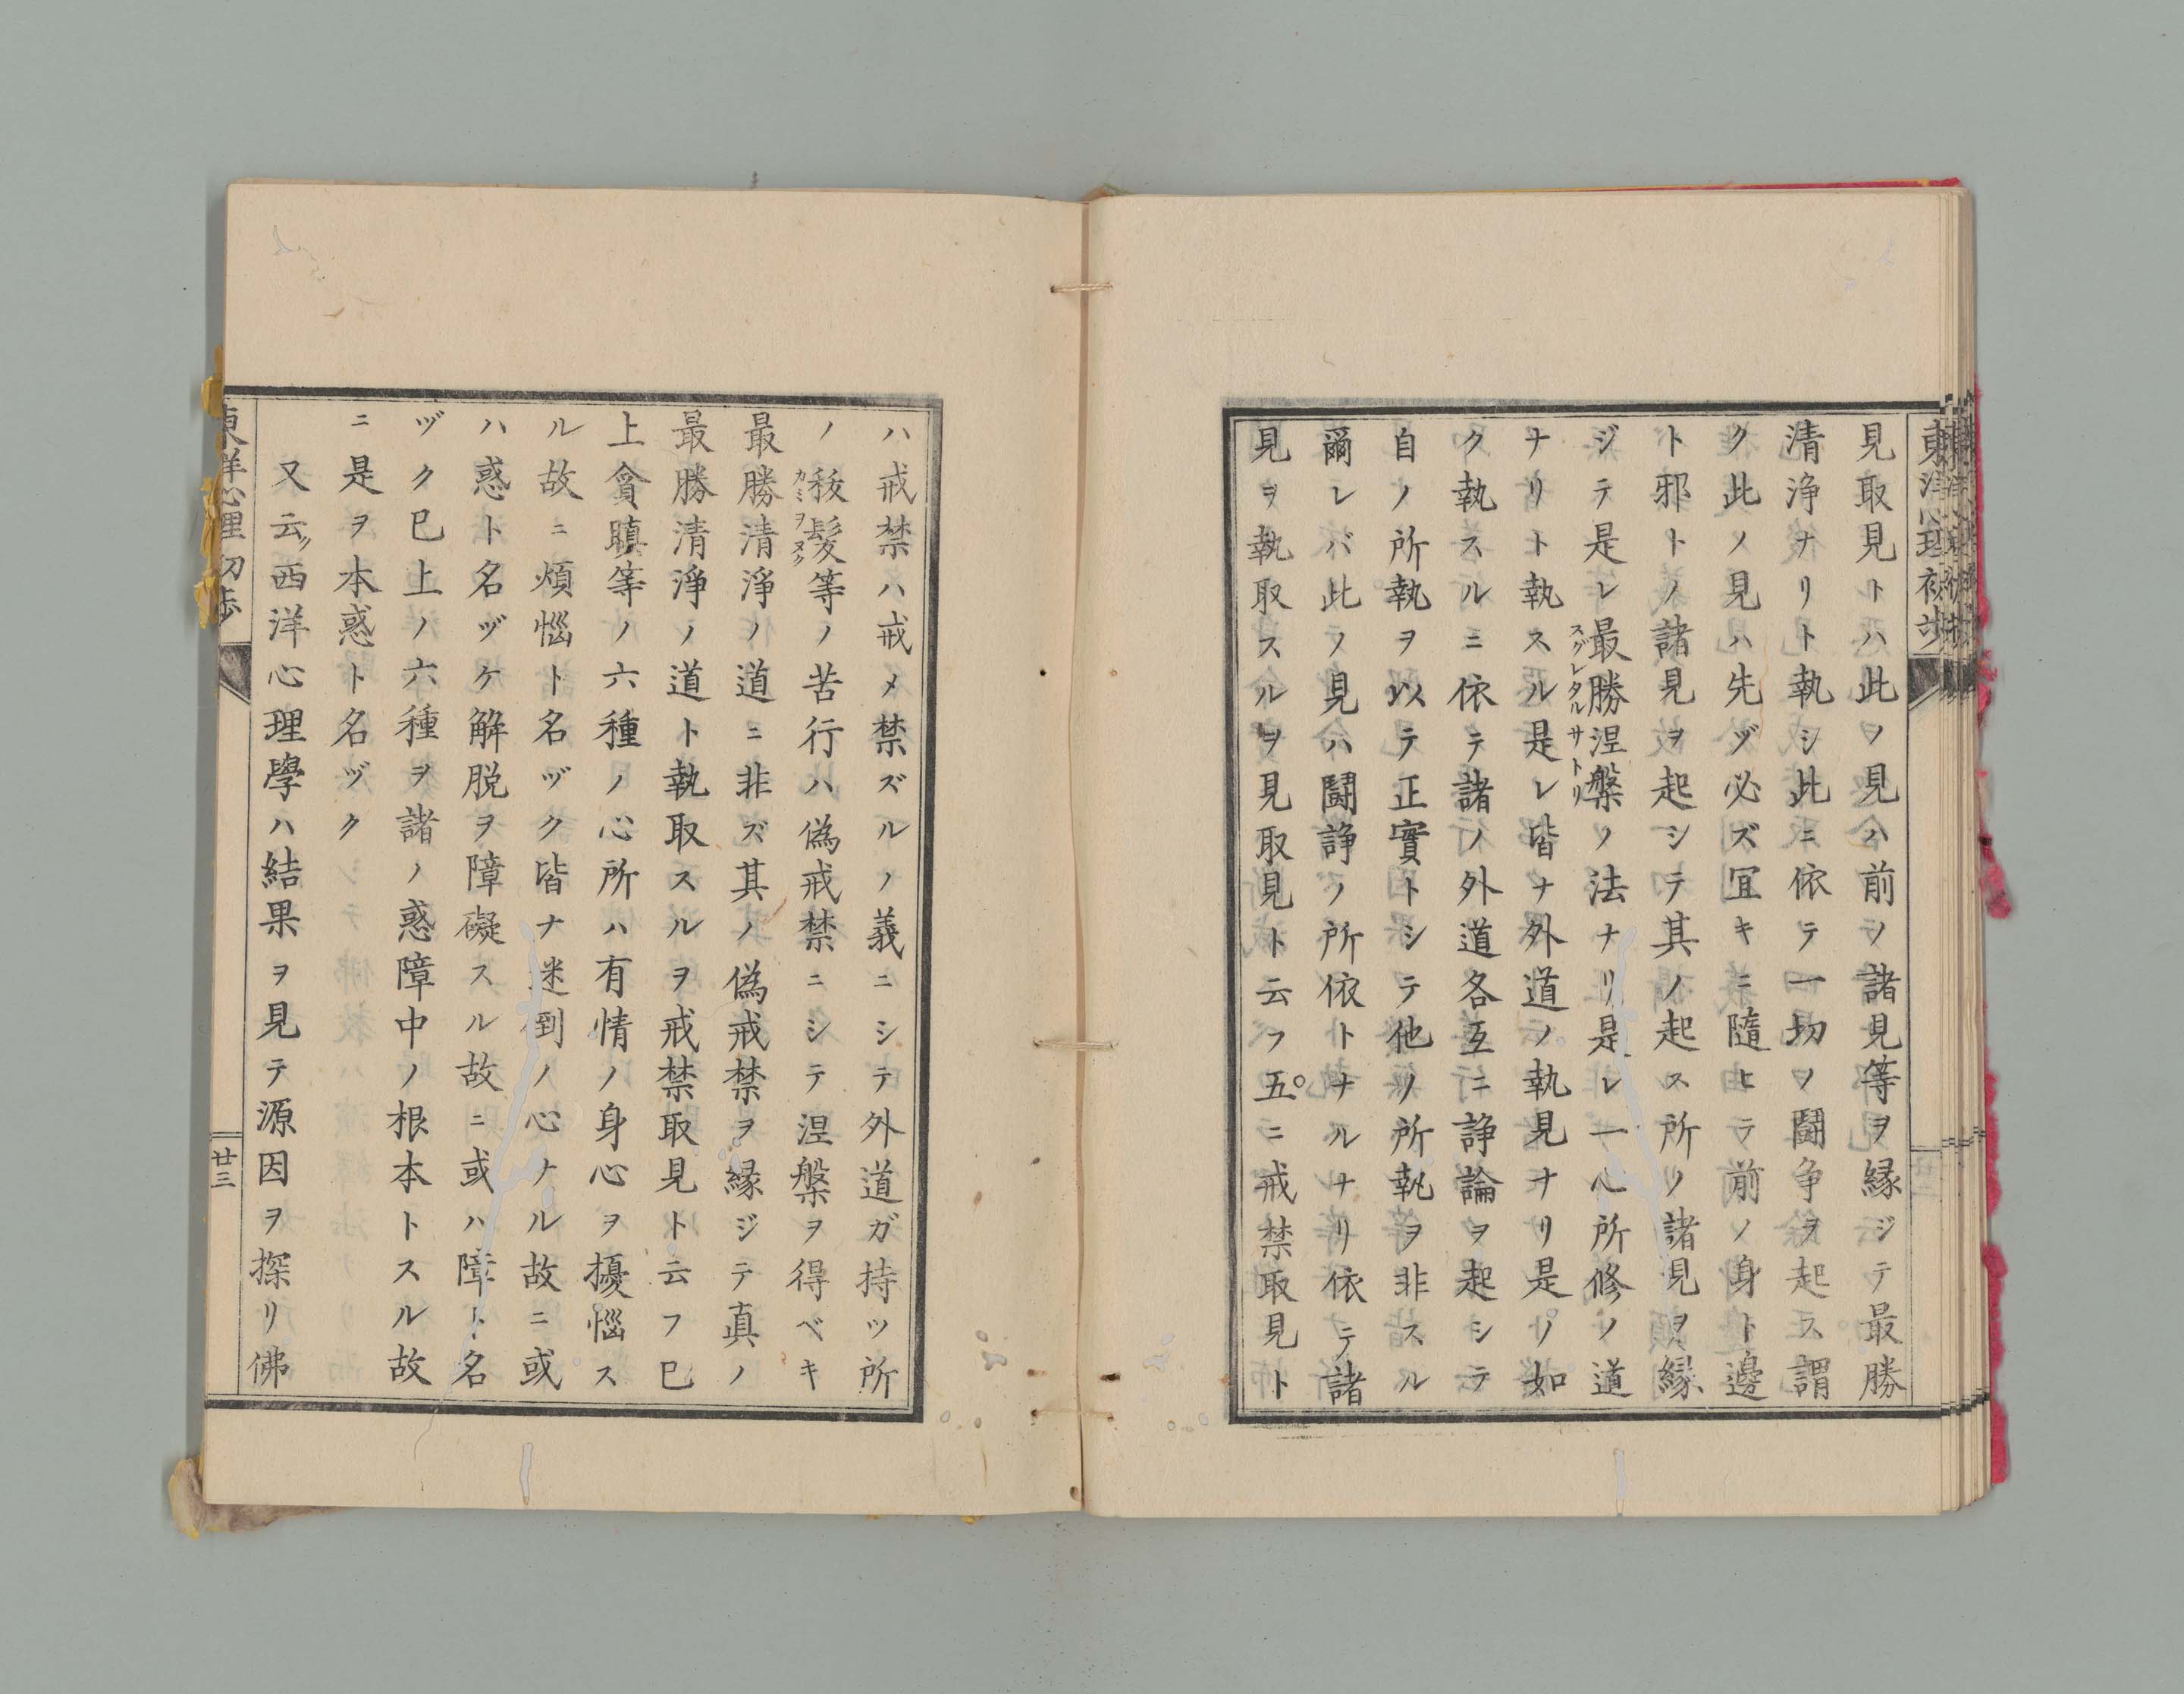 東洋心理初步
見取見トハ此ノ見ハ前ノ諸見等ヲ縁ジテ最勝
清浄ナリト執シ此ニ依テ一切ノ闘争ヲ起ス謂
ク此ノ見ハ先ヅ必ズ宜キニ隨ヒテ前ノ身ト邊
ト邪トノ諸見ヲ起シテ其ノ起ス所ノ諸見ヲ縁
ジテ是レ最勝涅槃ノ法ナリ是レ一心所修ノ道
スグレタルサトリ
ナリト執スル是レ皆ナ外道ノ執見ナリ是ノ如
ク執スルニ依テ諸ノ外道各互ニ諍論ヲ起シテ
自ノ所執ヲ以テ正實トシテ他ノ所執ヲ非スル
爾レバ此ノ見ハ闘諍ノ所依トナルナリ依テ諸
見ヲ執取スルヲ見取見ト云フ五ニ戒禁取見ト
ハ戒禁ハ戒メ禁ズルノ義ニシテ外道ガ持ツ所
ノ拔髪等ノ苦行ハ偽戒禁ニシテ涅槃ヲ得ベキ
カミヲヌク
最勝清淨ノ道ニ非ズ其ノ偽戒禁ヲ縁ジテ真ノ
最勝清淨ノ道ト執取スルヲ戒禁取見ト云フ已
上貪瞋等ノ六種ノ心所ハ有情ノ身心ヲ擾惱ス
ル故ニ煩惱ト名ヅク皆ナ迷倒ノ心ナル故ニ或
ハ惑ト名ヅケ解脱ヲ障礙スル故ニ或ハ障ト名
ヅク已上ノ六種ヲ諸ノ惑障中ノ根本トスル故
ニ是ヲ本惑ト名ヅク
又云ク西洋心理學ハ結果ヲ見テ源因ヲ探リ佛
東洋心理初步
廿三